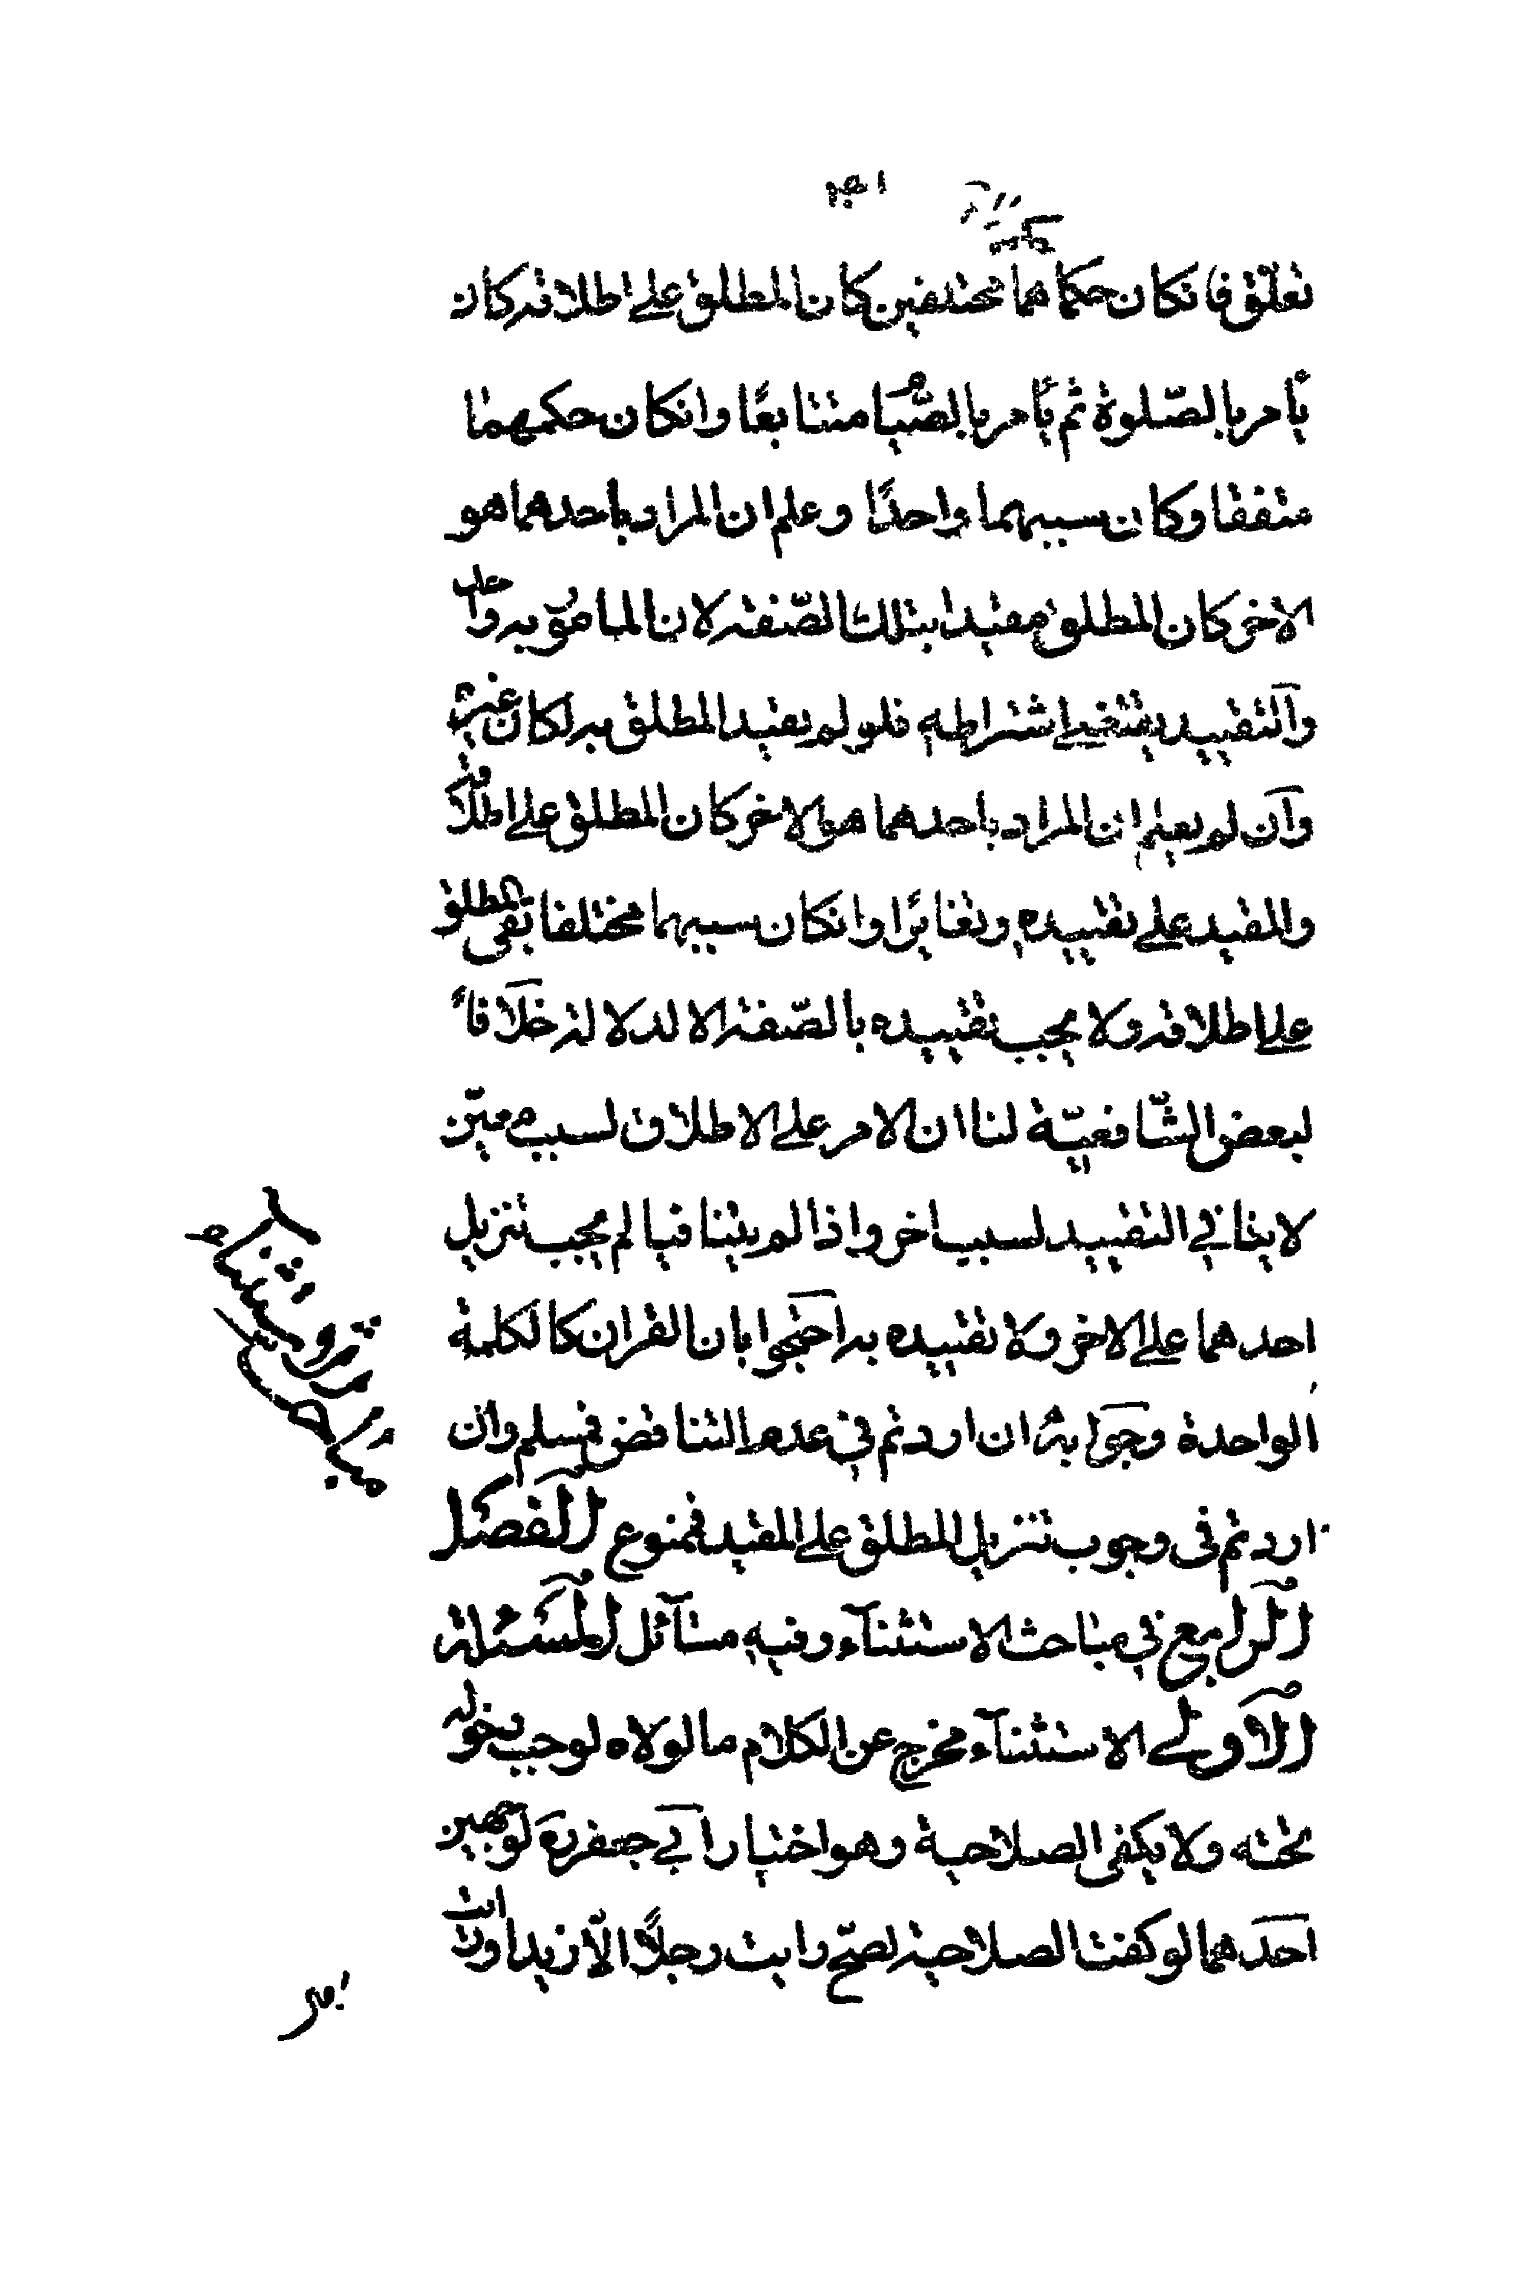 تعلق فانكان حكماهما مختلفين كان المطلق على اطلاقه كان
يأمر بالصّلوة ثم يأمر بالصّيام متتابعًا وانكان حكمهما
متفقا وكان سببهما واحدًا وعلم ان المراد باحدهما هو
الاخر كان المطلق مقيدا بتلك الصّفة لان المامور به واحد
والتقييد يقتضي اشتراطه فلو لم يقيد المطلق به لكان غيره
وان لم يعلم ان المراد باحدهما هو الاخر كان المطلق على اطلاقه
والمقيد على تقييده وتغايرا وانكان سببهما مختلفا بقى المطلق
على اطلاقه ولا يجب تقييده بالصّفة الا لدلالة خلافاً
لبعض الشّافعيّة لنا ان الامر على الاطلاق لسبب معيّن
لا ينافي التقييد لسبب اخر واذا لم يتنافيا لم يجب تنزيل
احدهما على الاخر ولا تقييده به احتجوا بان القران كالكلمة
الواحدة وجوابه ان اردتم في عدم التناقض فمسلم وان
اردتم فى وجوب تنزيل المطلق على المقيد فممنوع الفصل
الرابع في مباحث الاستثناء وفيه مسائل المسئلة
الاولى الاستثناء مخرج عن الكلام ما لولاه لوجب دخوله
تحته ولا يكفى الصلاحية وهو اختيار ابي جعفر ره لوجهين
احدهما لو كفت الصلاحية لصح رايت رجلاً الاّ زيدا ورايت